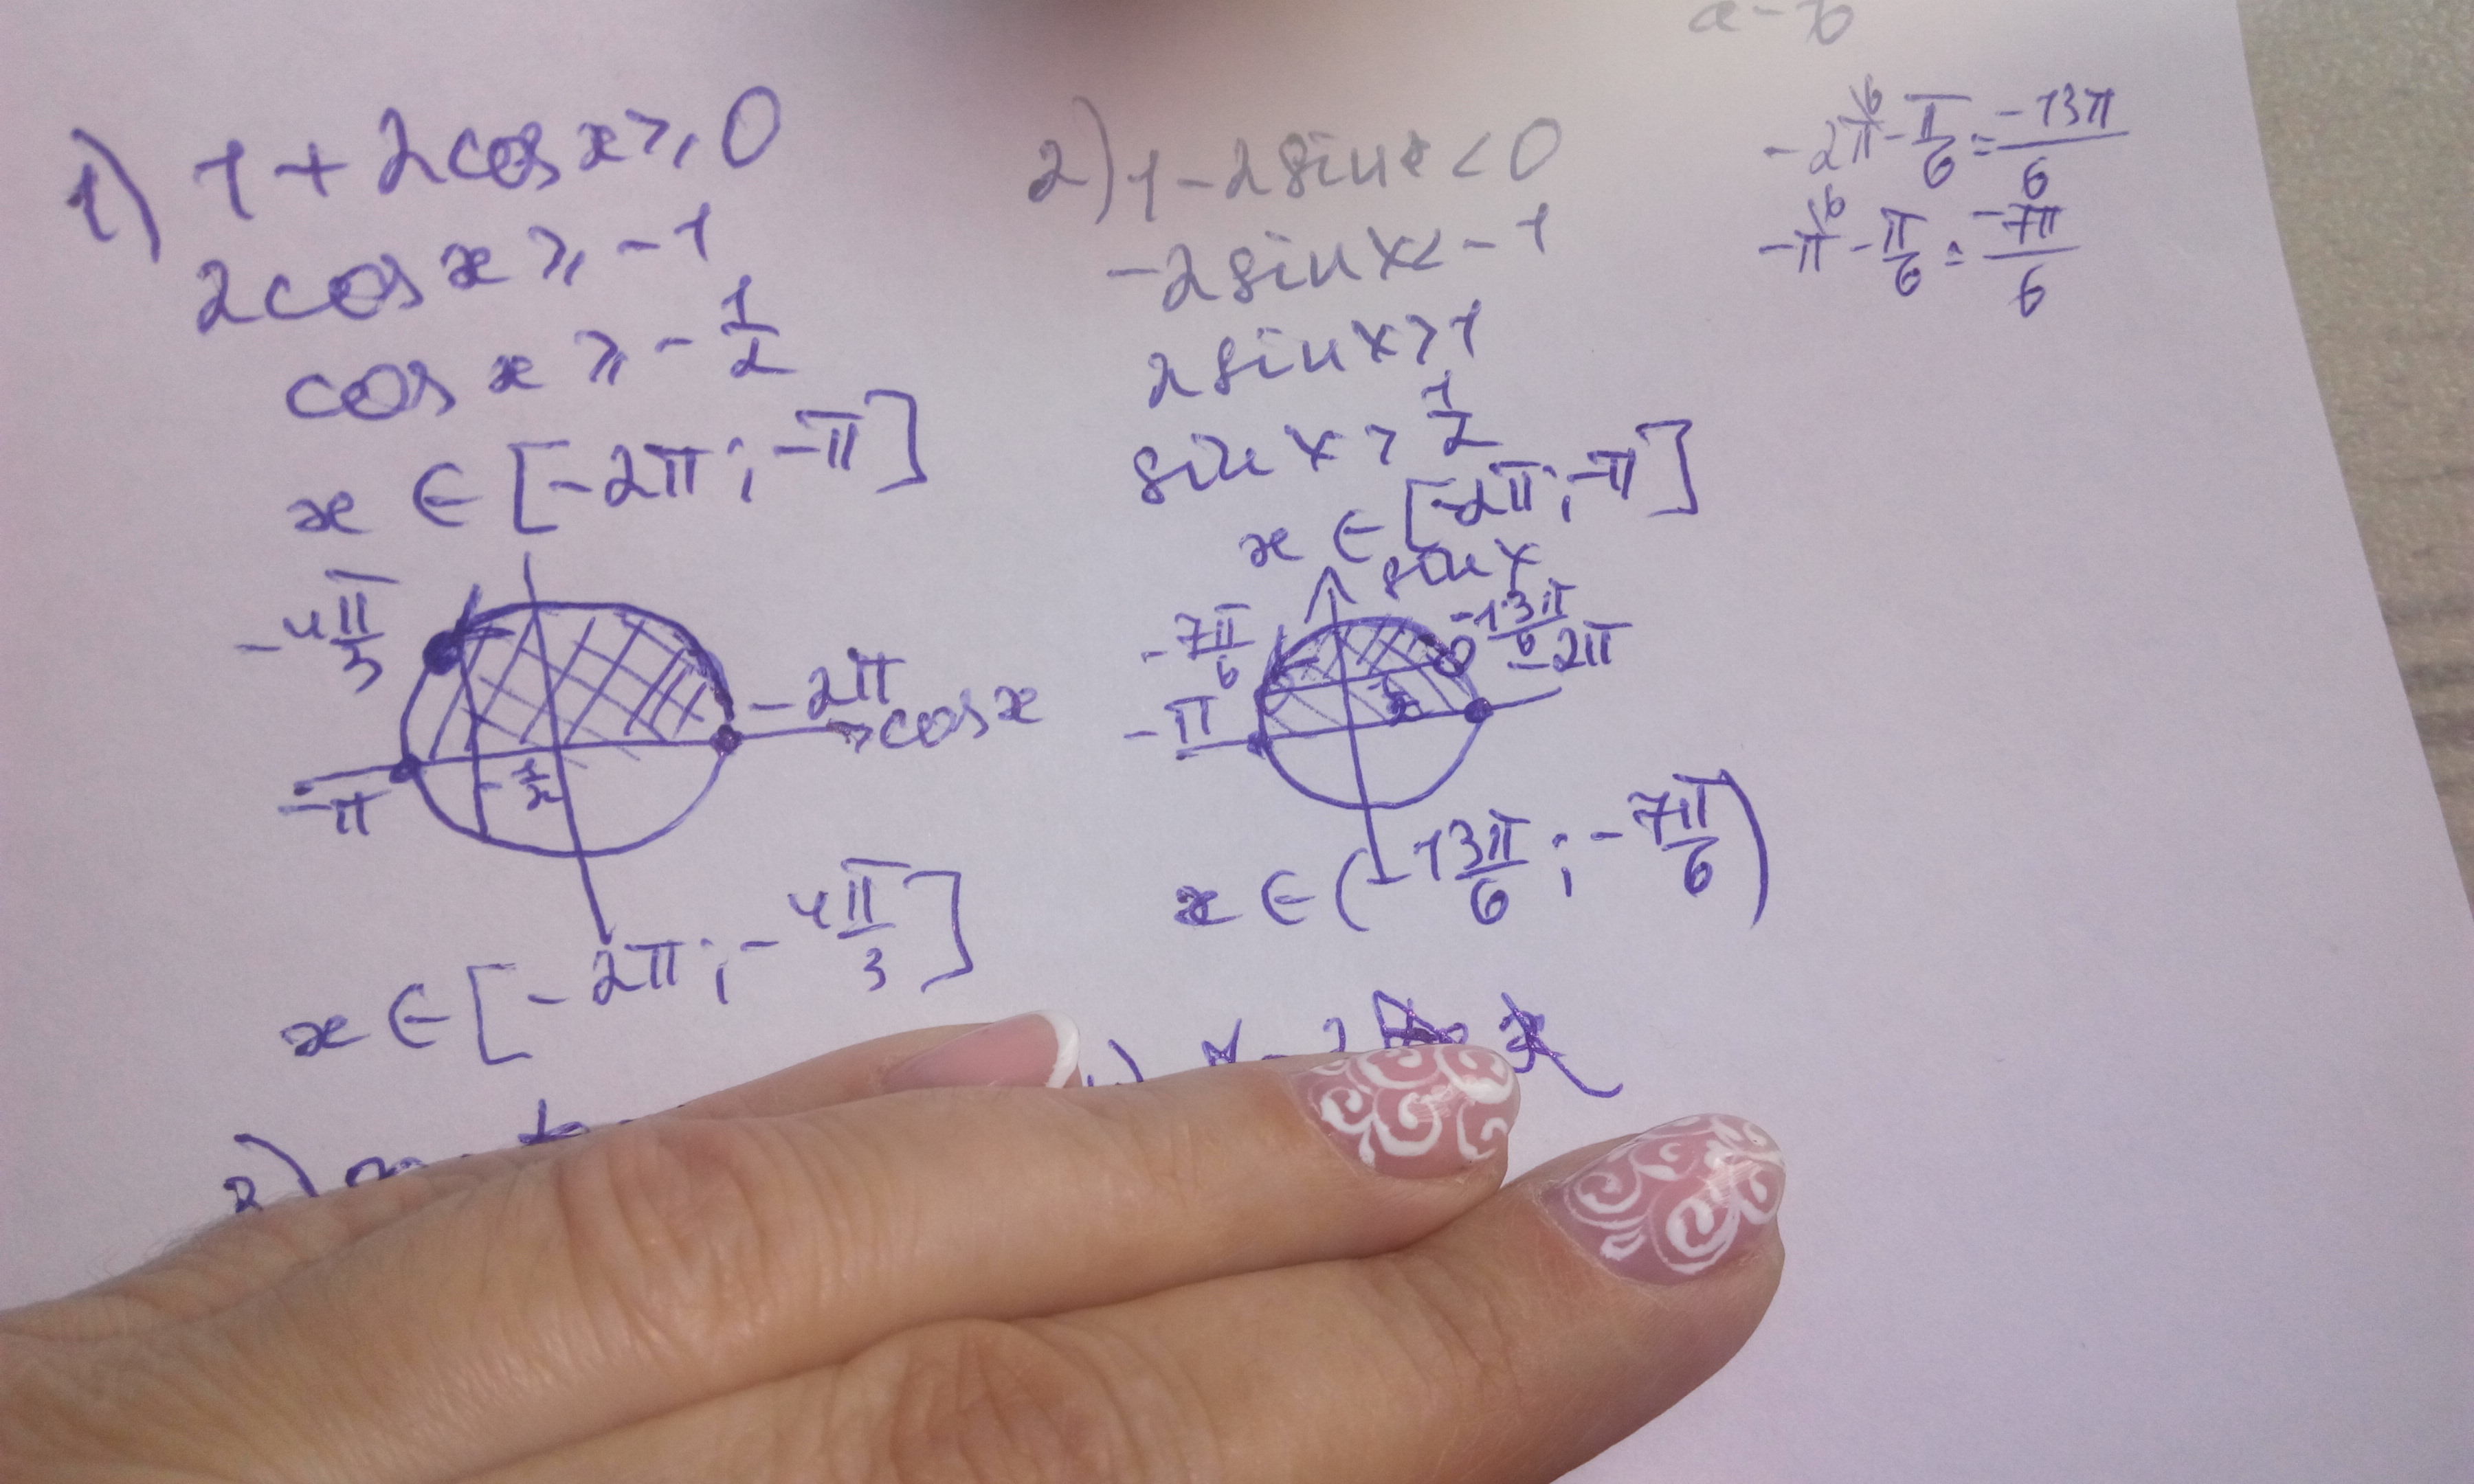 a-b
1) 1 + 2cosx ⩾ 0
2cosx ⩾ -1
cosx ⩾ -1/2
x ∈ [-2π; -π]
-4π/3
-2π
cosx
-π
-1/2
x ∈ [-2π; -4π/3]
2) 1 - 2sinx < 0
-2sinx < -1
2sinx > 1
sinx > 1/2
x ∈ [-2π; -π]
sinx
-7π/6
-13π/6
-2π
-π
1/2
x ∈ (-13π/6; -7π/6)
-2π\6 - π/6 = -13π/6
-π\6 - π/6 = -7π/6
3)